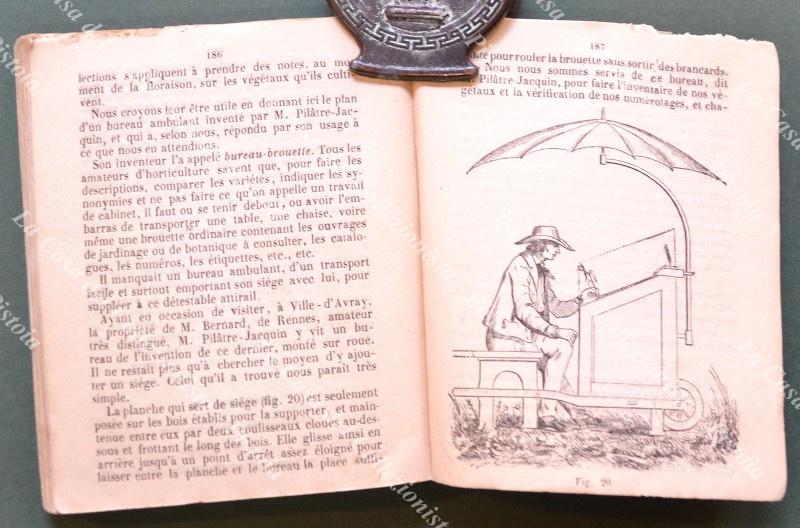 186
lections s'appliquent à prendre des notes, au mo-
ment de la floraison, sur les végétaux qu'ils culti-
vent.
Nous croyons leur être utile en donnant ici le plan
d'un bureau ambulant inventé par M. Pilâtre-Jac-
quin, et qui a, selon nous, répondu par son usage à
ce que nous en attendions.
Son inventeur l'a appelé bureau-brouette. Tous les
amateurs d'horticulture savent que, pour faire les
descriptions, comparer les variétés, indiquer les sy-
nonymies et ne pas faire ce qu'on appelle un travail
de cabinet, il faut ou se tenir debout, ou avoir l'em-
barras de transporter une table, une chaise, voire
même une brouette ordinaire contenant les ouvrages
de jardinage ou de botanique à consulter, les catalo-
gues, les numéros, les étiquettes, etc., etc.
Il manquait un bureau ambulant, d'un transport
facile et surtout emportant son siége avec lui, pour
suppléer à ce détestable attirail.
Ayant eu occasion de visiter, à Ville-d'Avray,
la propriété de M. Bernard, de Rennes, amateur
très distingué, M. Pilâtre-Jacquin y vit un bu-
reau de l'invention de ce dernier, monté sur roue.
Il ne restait plus qu'à chercher le moyen d'y ajou-
ter un siége. Celui qu'il a trouvé nous paraît très
simple.
La planche qui sert de siége (fig. 20) est seulement
posée sur les bois établis pour la supporter, et main-
tenue entre eux par deux coulisseaux cloués au-des-
sous et frottant le long des bois. Elle glisse ainsi en
arrière jusqu'à un point d'arrêt assez éloigné pour
laisser entre la planche et le bureau la place suffi-
187
pour rouler la brouette sans sortir des brancards.
Nous nous sommes servis de ce bureau, dit
Pilâtre-Jacquin, pour faire l'inventaire de nos vé-
gétaux et la vérification de nos numérotages, et cha-
Fig. 20.
La Casa del Collezionista
Pistoia